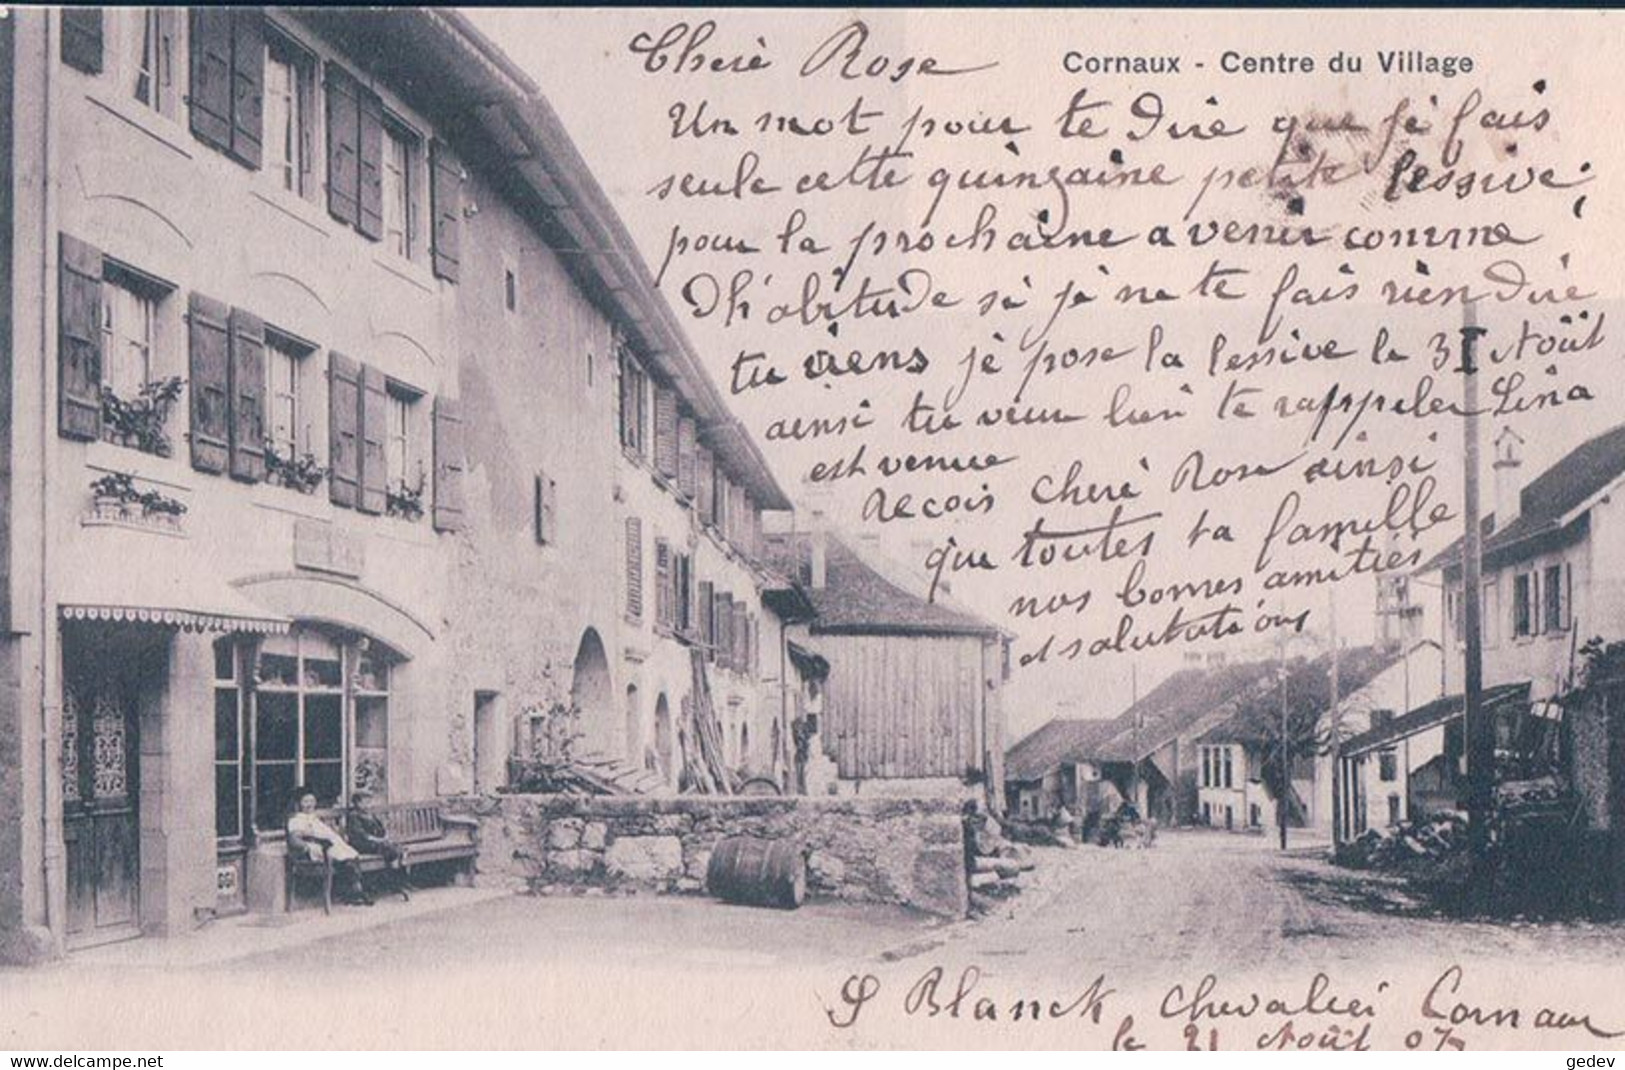 Cornaux - Centre du Village
Cherè Rose
Un mot pour te dire que jé fais
seule cette quinzaine petite lessive;
pour la prochaine a venir comme
d'habitude si jé ne te fais rien dire
tu viens jé pose la lessive le 31 Août
ainsi tu veux bien te rappeler Lina
est venue
Recois cherè Rose ainsi
que toutes ta famille
nos bonnes amitiés
et salutations
S Blanck Chevalier Cornaux
le 21 Août 07
GGI
www.delcampe.net
gedev